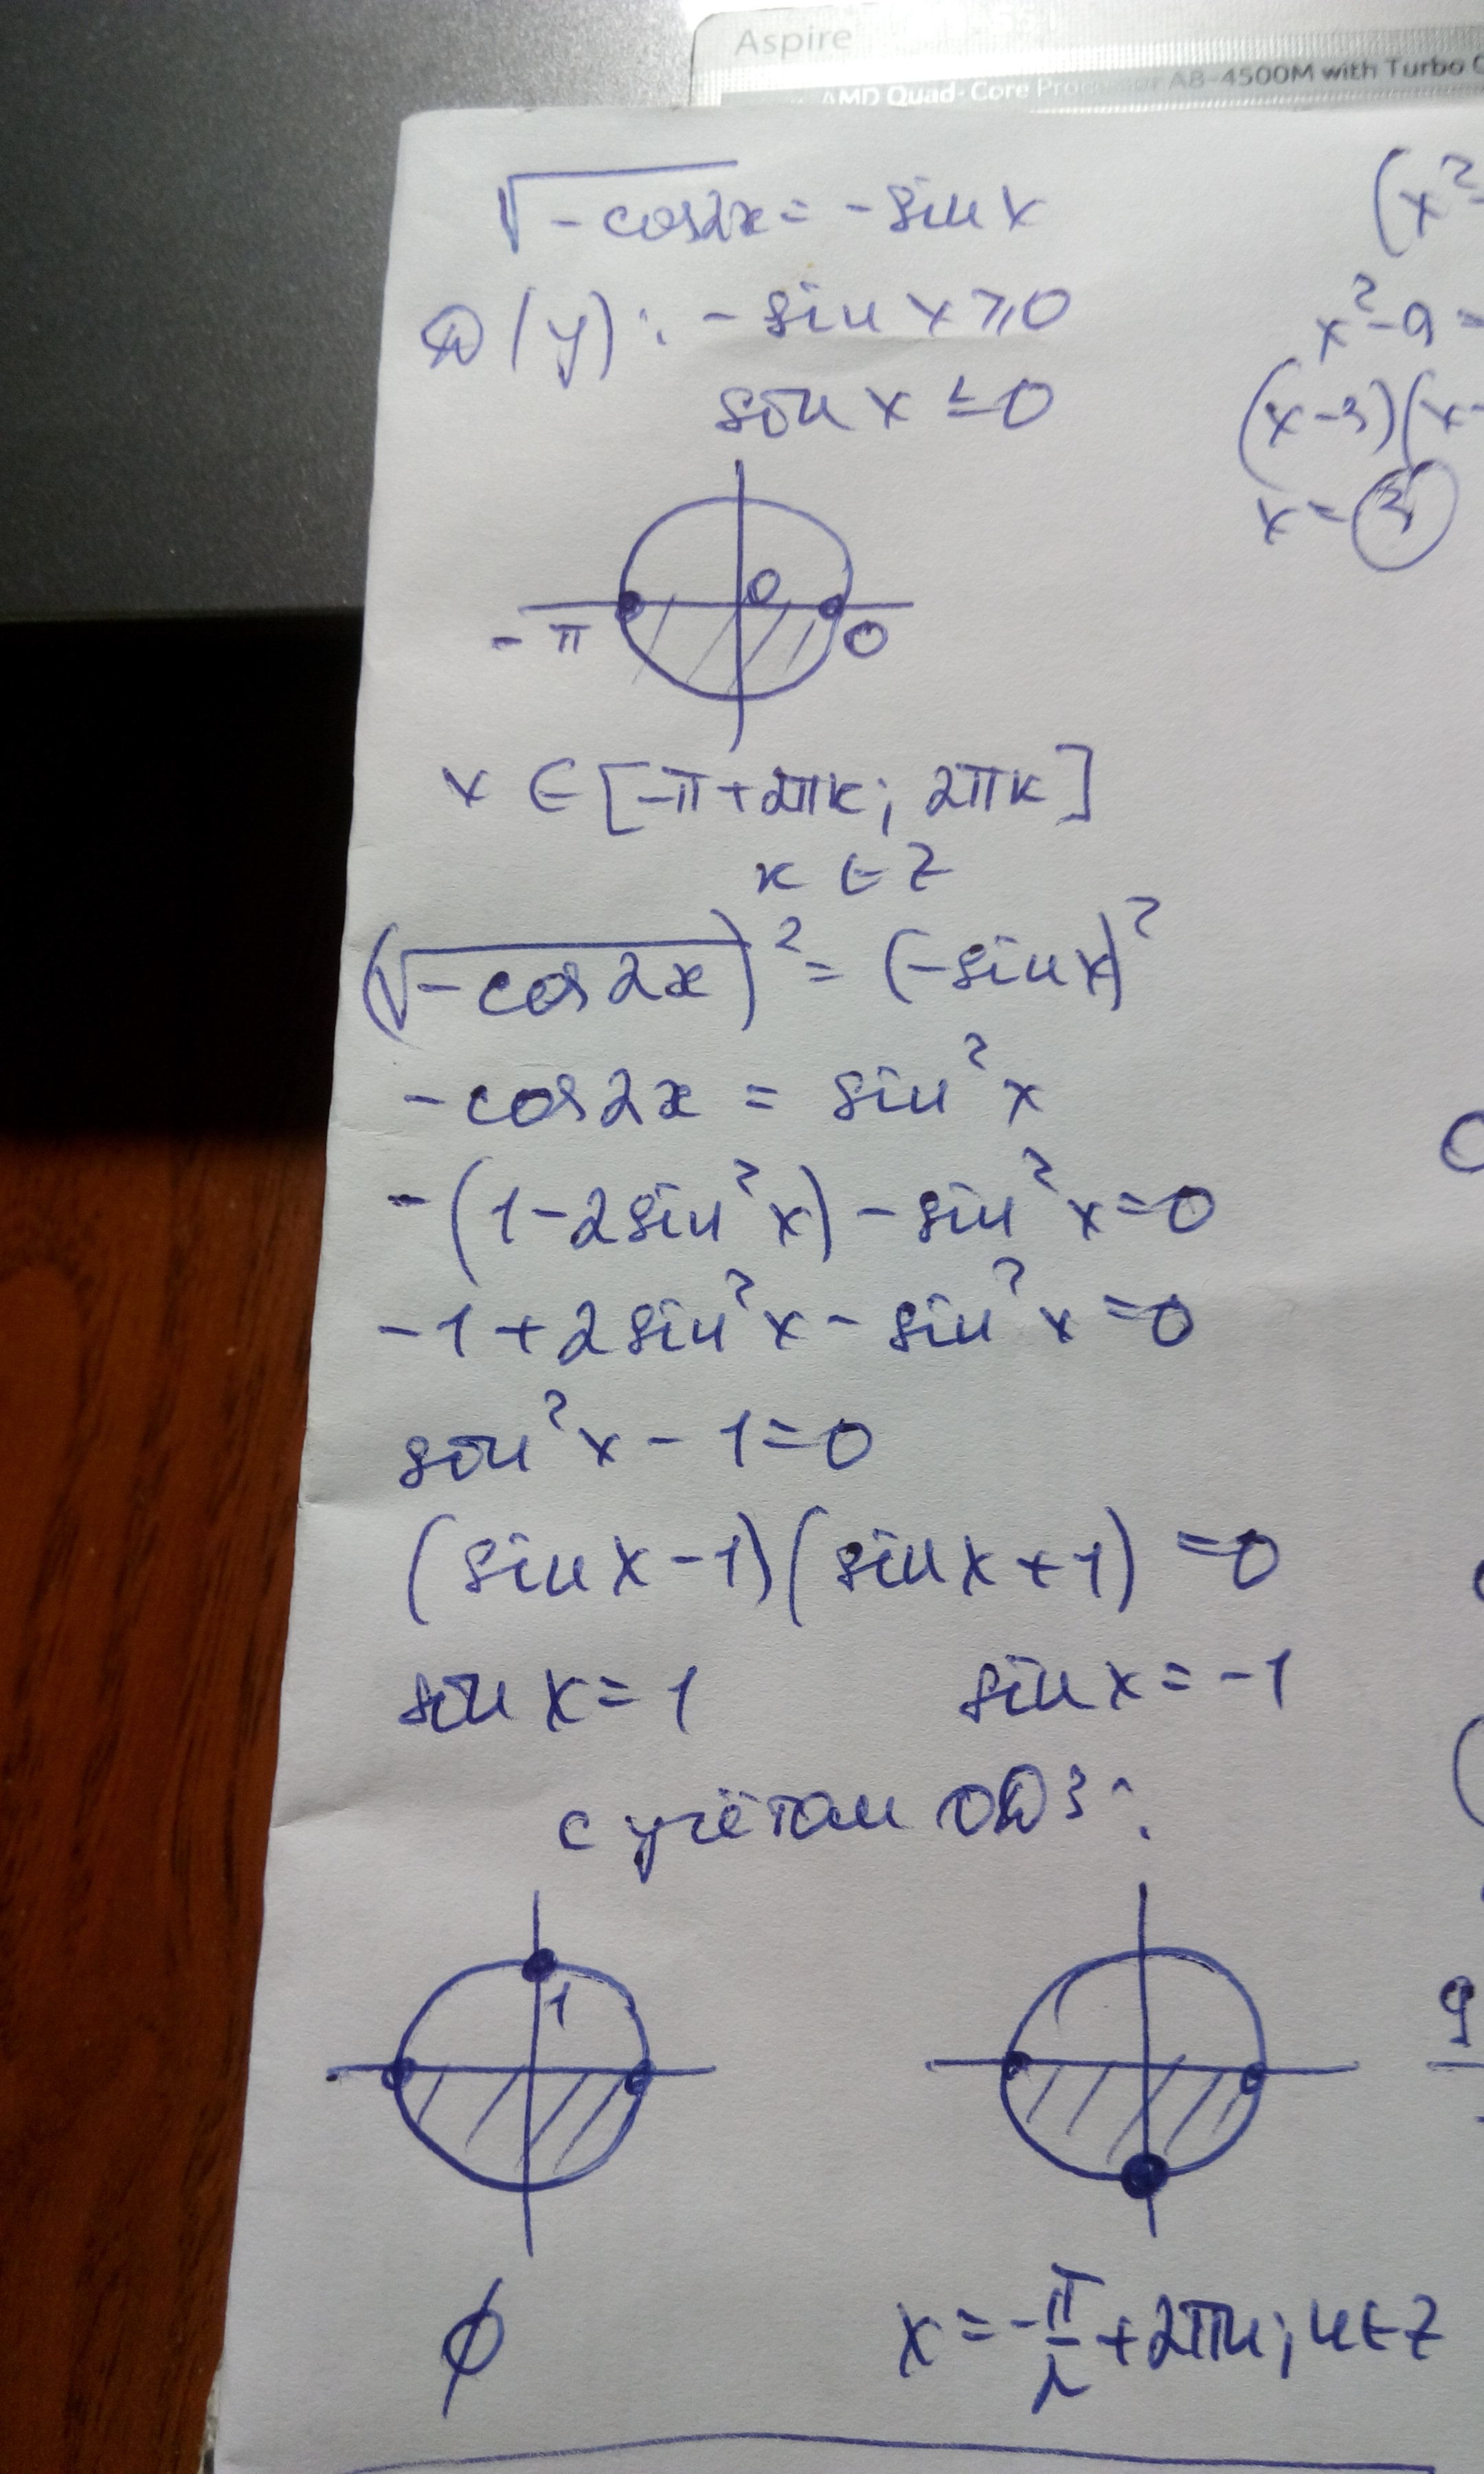 Aspire
AMD Quad-Core Processor A8-4500M with Turbo C
√-cos2x = -sin x
D(y): -sin x ≥ 0
sin x ≤ 0
0
-π 0
x ∈ [-π+2πk; 2πk]
k ∈ Z
(√-cos2x)² = (-sin x)²
-cos2x = sin²x
-(1-2sin²x)-sin²x=0
-1+2sin²x-sin²x=0
sin²x-1=0
(sin x-1)(sin x+1)=0
sin x=1 sin x=-1
с учётом ОДЗ:
1
∅ x=-π/2+2πn; n∈Z
(x²-
x²-9=
(x-3)(x-
x=3
9